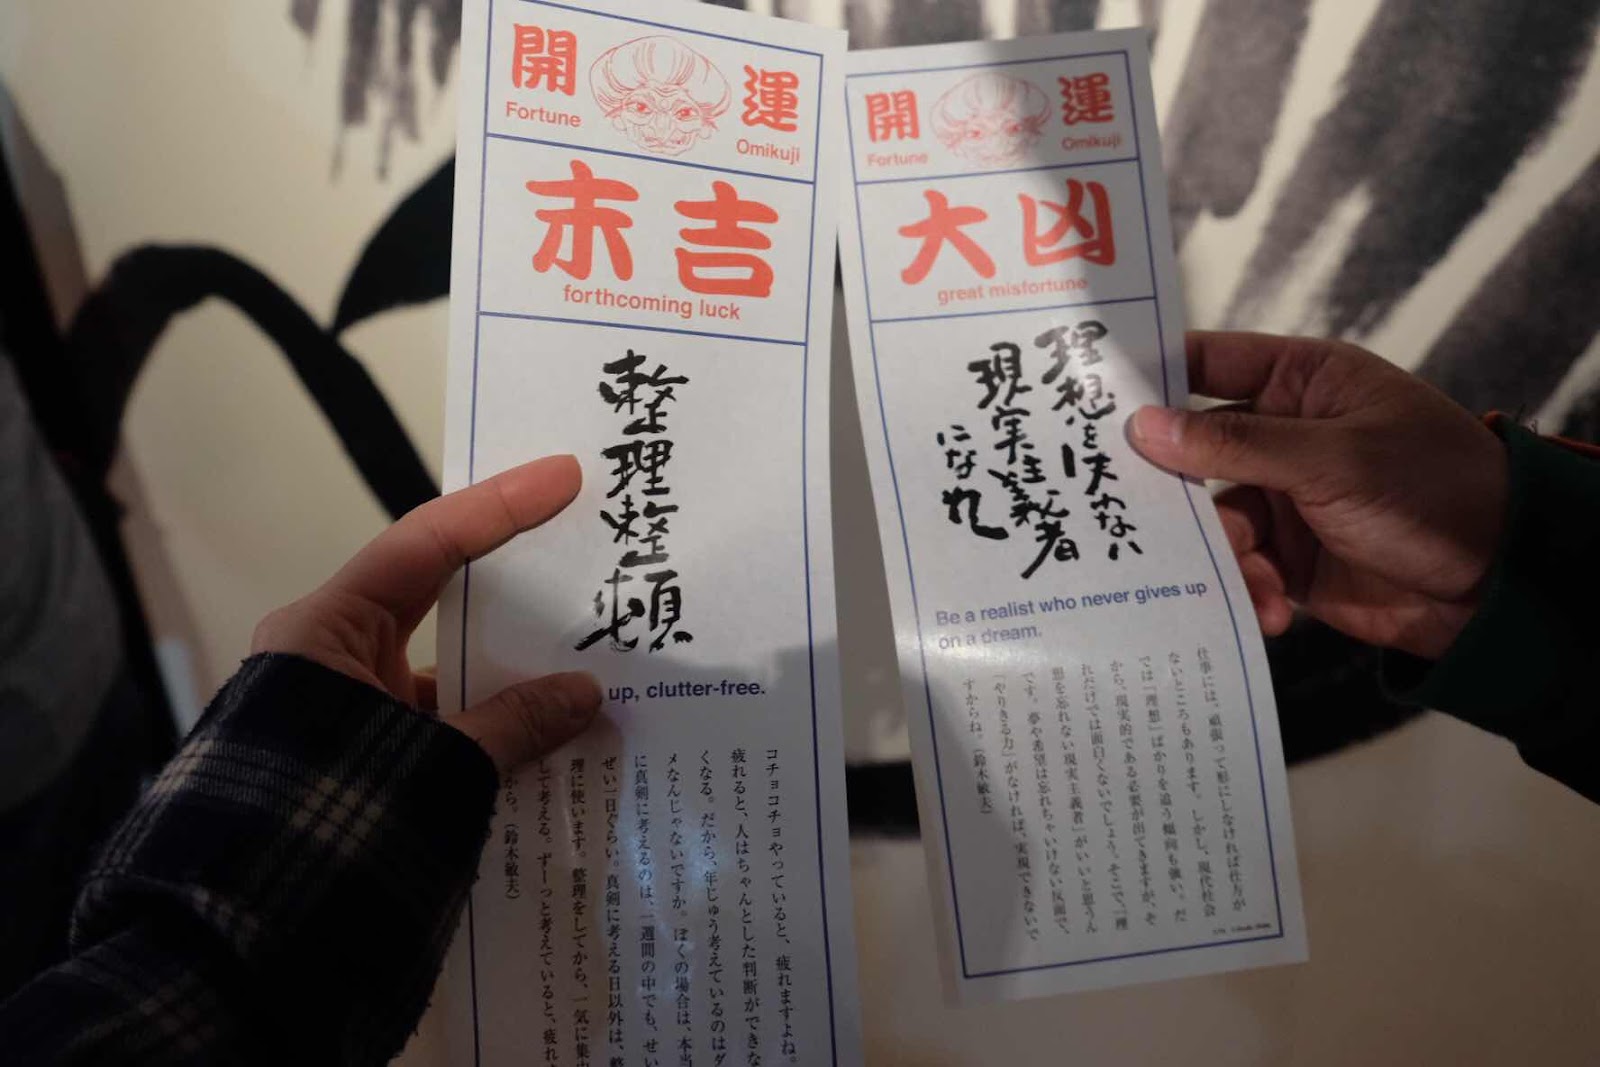 開運
Fortune
Omikuji
末吉
forthcoming luck
整理整頓
up, clutter-free.
コチョコチョやっていると、疲れますよね。
疲れると、人はちゃんとした判断ができな
くなる。だから、年じゅう考えているのはダ
メなんじゃないですか。ぼくの場合は、本当
に真剣に考えるのは、一週間の中でも、せい
ぜい一日ぐらい。真剣に考える日以外は、整
理に使います。整理をしてから、一気に集中
して考える。ずーっと考えていると、疲れ
から。（鈴木敏夫）
開運
Fortune
Omikuji
大凶
great misfortune
理想を失わない
現実主義者
になれ
Be a realist who never gives up
on a dream.
仕事には、頑張って形にしなければ仕方が
ないところもあります。しかし、現代社会
では「理想」ばかりを追う傾向も強い。だ
から、現実的である必要が出てきますが、そ
れだけでは面白くないでしょう。そこで、「理
想を忘れない現実主義者」がいいと思うん
です。夢や希望は忘れちゃいけない反面で、
「やりきる力」がなければ、実現できないで
すからね。（鈴木敏夫）